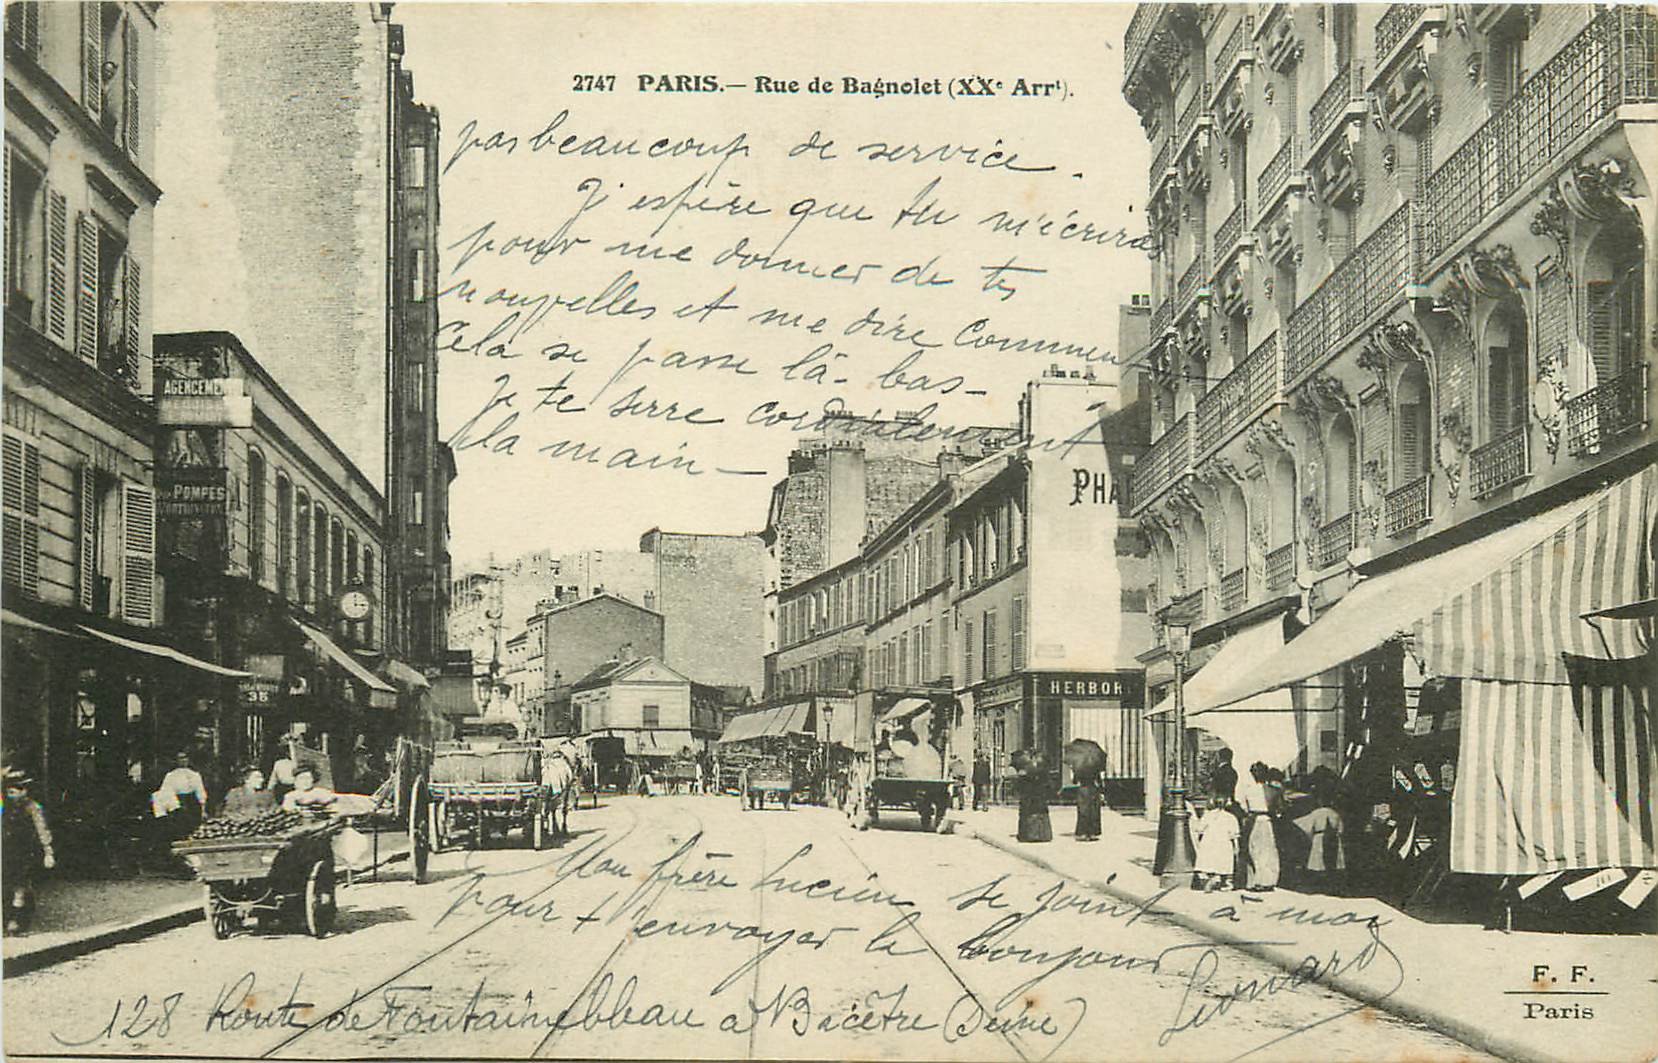 2747 PARIS.— Rue de Bagnolet (XXe Arrt).
pas beaucoup de service.
J'espère que tu m'écriras
pour me donner de tes
nouvelles et me dire Commen
Cela se passe là-bas–
Je te serre cordialement
la main–
PHA
AGENCEME
POMPES
38
HERBOR
Mon frère Lucien se joint à moi
pour t'envoyer le bonjour
Léonard
128 Route de Fontainebleau à Bicêtre (Seine)
F. F.
Paris